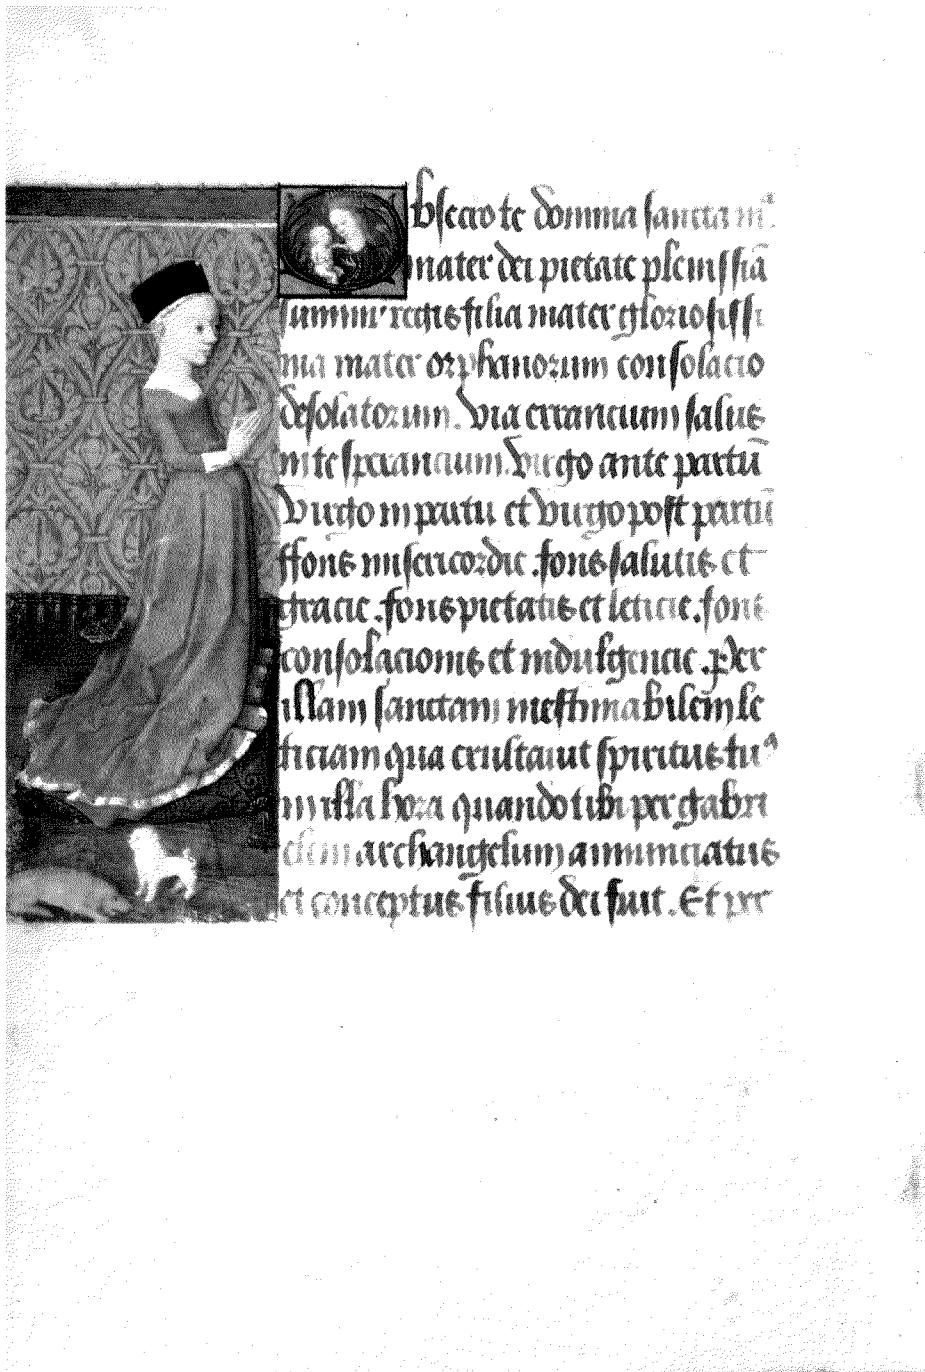 Obsecro te domina sancta mᵃ.
mater dei pietate plenissīā
summi regis filia mater gloriosissi
ma mater orphanorum consolacio
desolatorum. Via errancium salus
in te sperancium. Virgo ante partū
Virgo in partu et Virgo post partū
ffons misericordie .fons salutis et
gracie .fons pietatis et leticie .fons
consolacionis et indulgencie .Per
illam sanctam inestimabilem le
ticiam qua exultauit spiritus tuᵘˢ
in illa hora quando tibi per gabri
elem archangelum annunciatus
et conceptus filius dei fuit . Et per